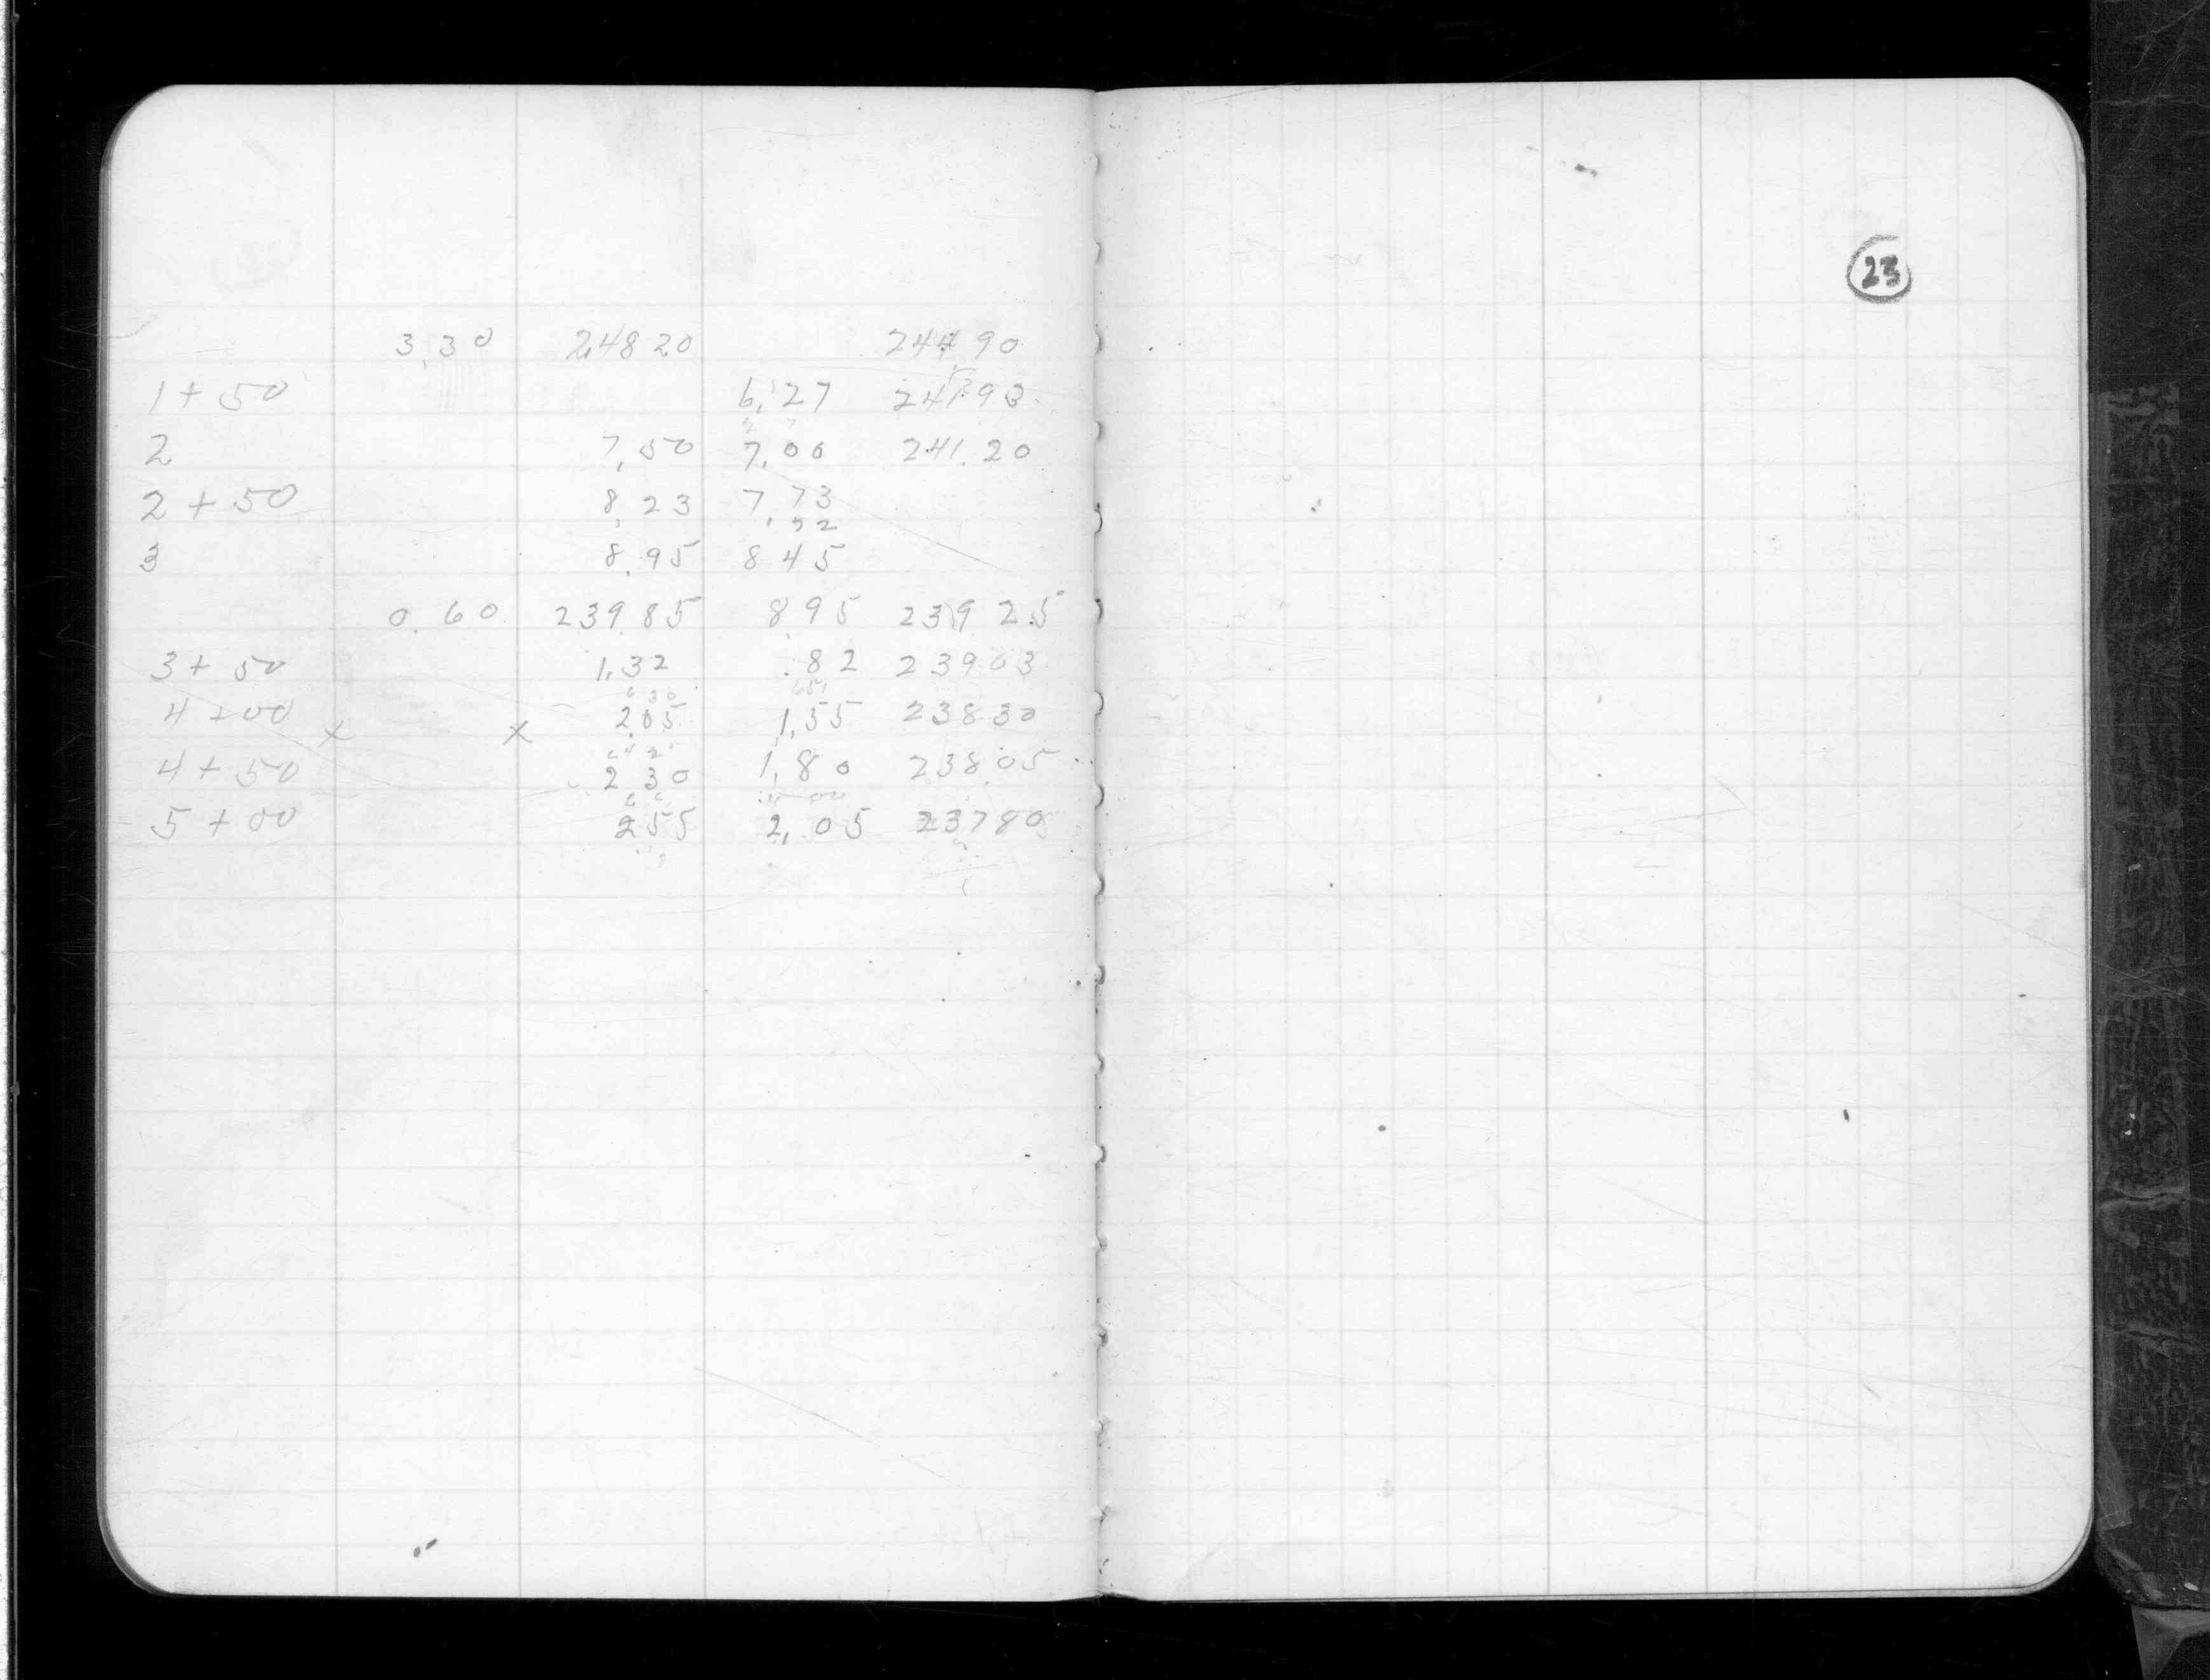 23
3.30 248 20 244 90
1 + 50 6.27 241.93
2 7.50 7.00 241.20
2 + 50 8.23 7.73
3 8.95 8 45
0.60 239.85 8 95 239 25
3 + 50 1.32 .82 239 03
4 + 00 2.05 1.55 238 30
4 + 50 2 30 1.80 238.05
5 + 00 2 55 2.05 237 80